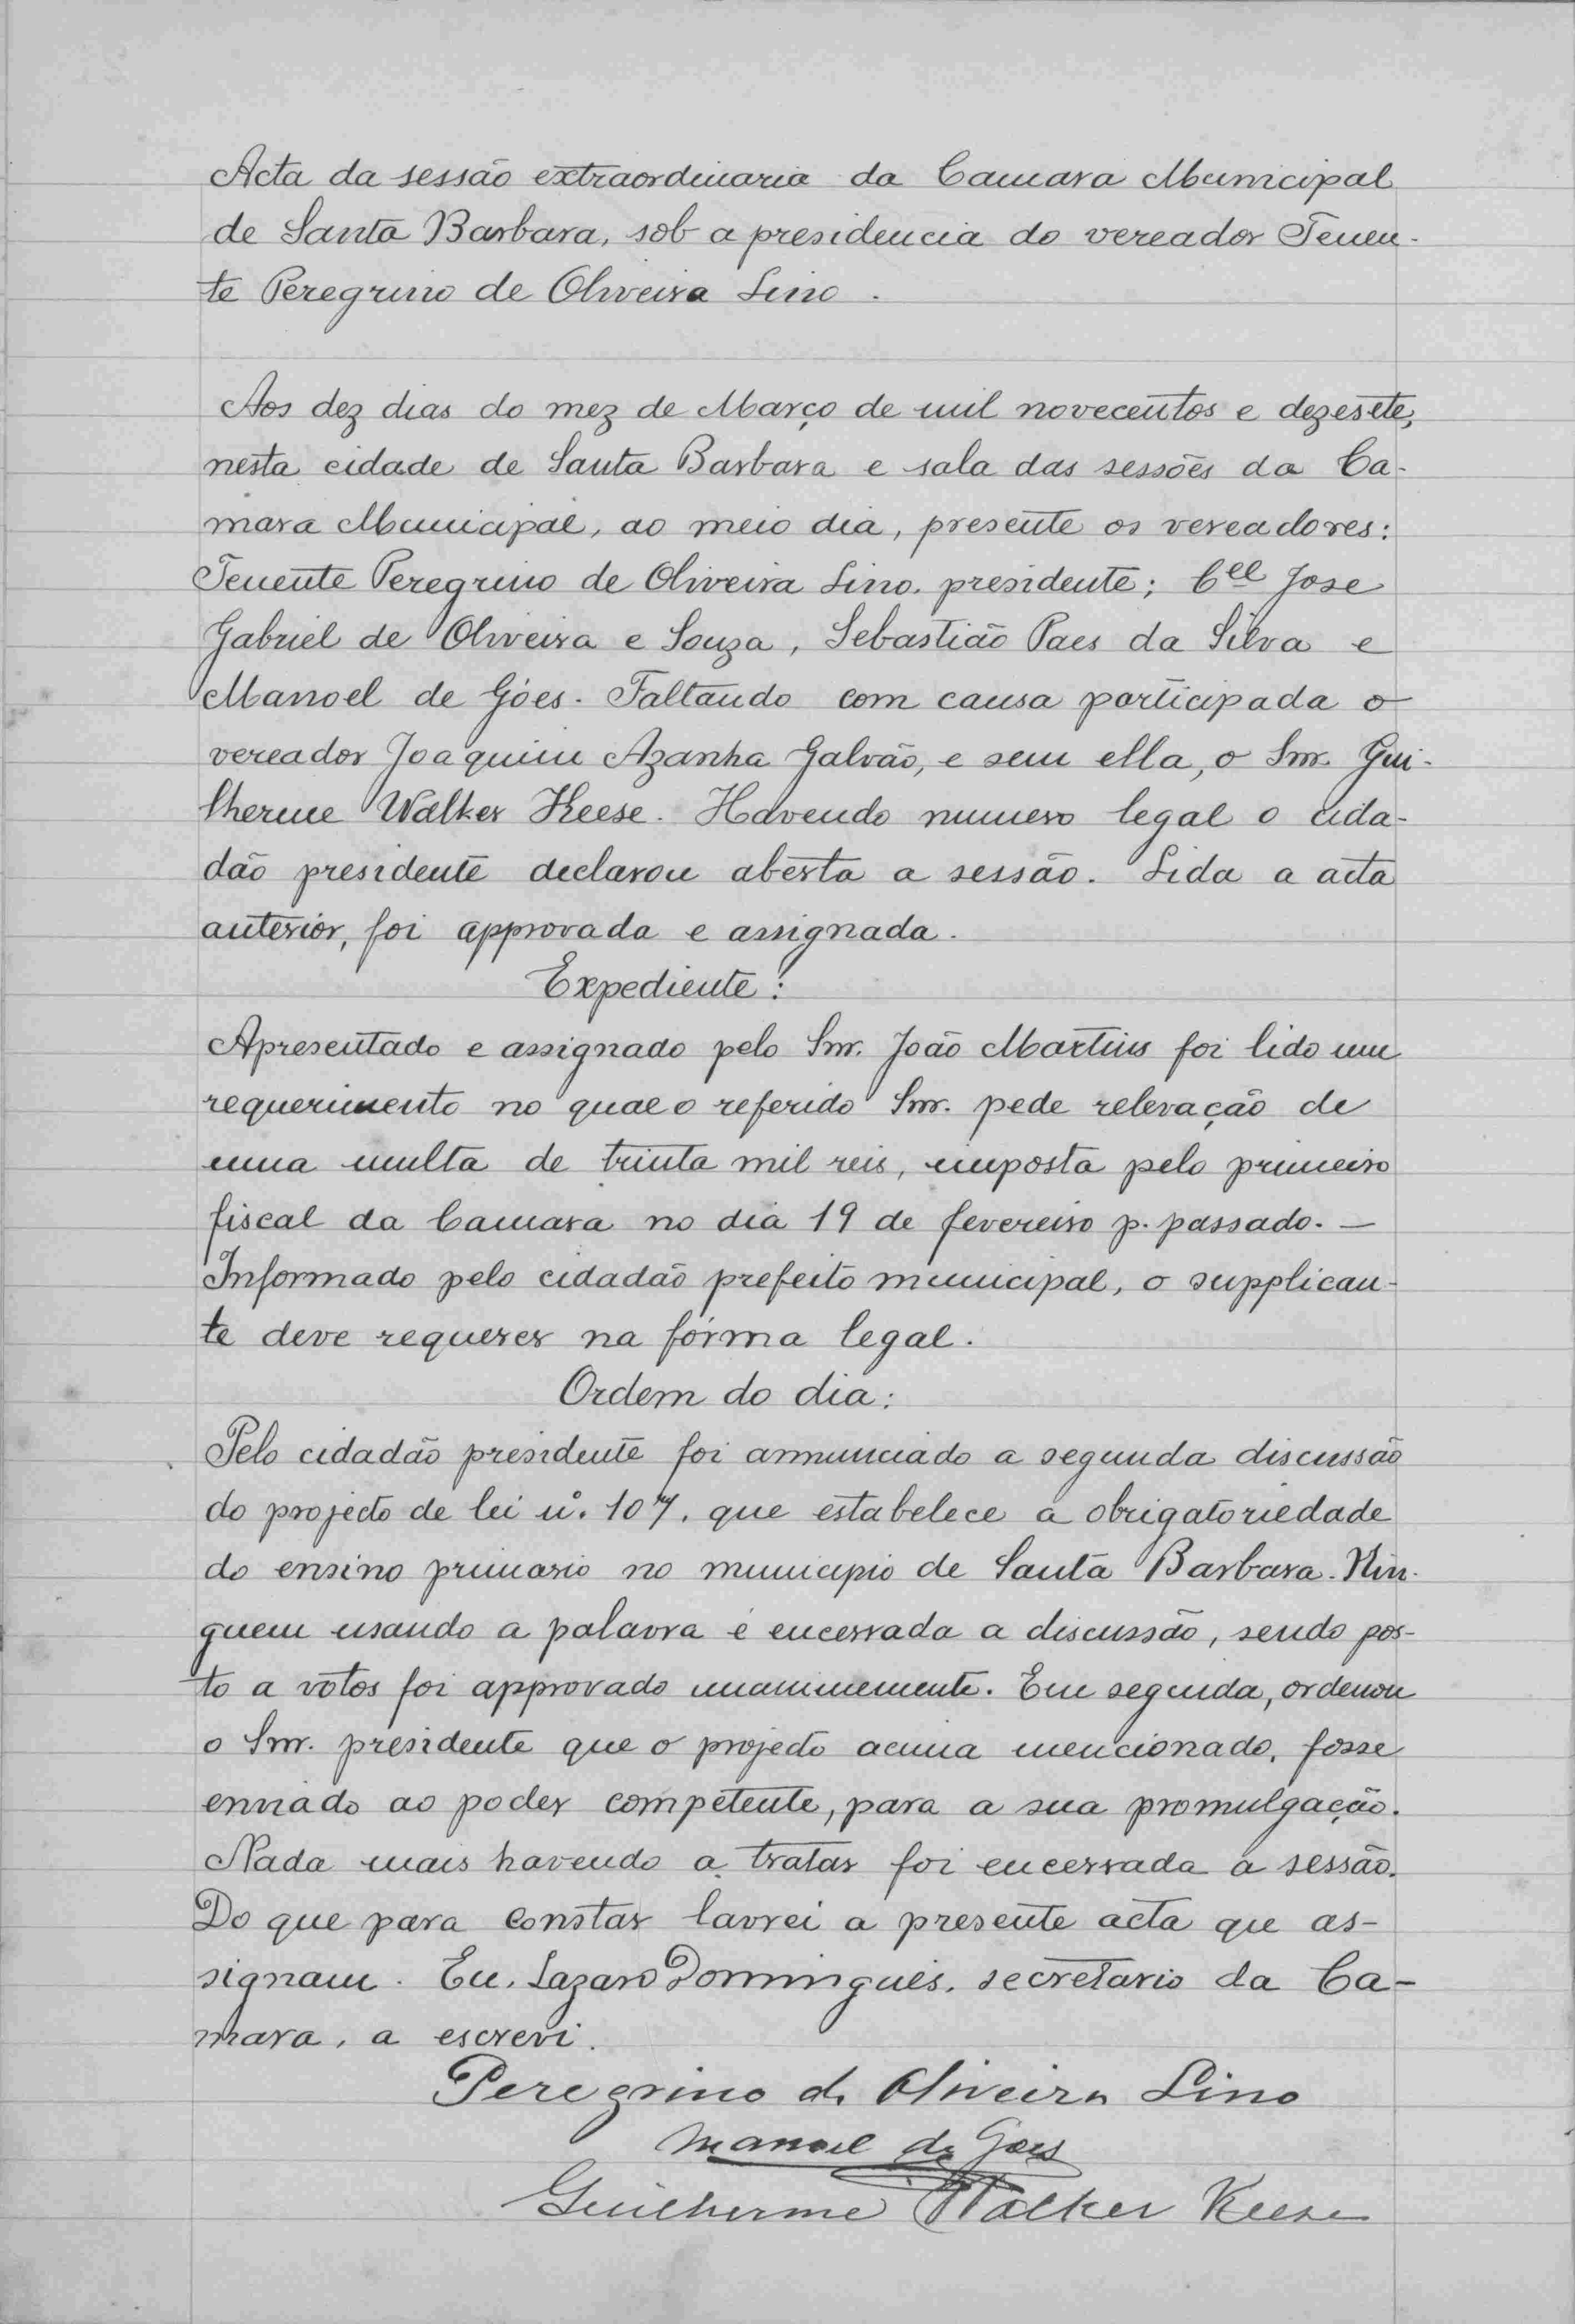 Acta da sessão extraordinaria da Camara Municipal
de Santa Barbara, sob a presidencia do vereador Tenen-
te Peregrino de Oliveira Lino.
Aos dez dias do mez de Março de mil novecentos e dezesete,
nesta cidade de Santa Barbara e sala das sessões da Ca-
mara Municipal, ao meio dia, presente os vereadores:
Tenente Peregrino de Oliveira Lino, presidente; Cel Jose
Gabriel de Oliveira e Souza, Sebastião Paes da Silva e
Manoel de Góes. Faltando com causa participada o
vereador Joaquim Azanha Galvão, e sem ella, o Snr. Gui-
lherme Walker Keese. Havendo numero legal o cida-
dão presidente declarou aberta a sessão. Lida a acta
anterior, foi approvada e assignada.
Expediente:
Apresentado e assignado pelo Snr. João Martins foi lido um
requerimento no qual o referido Snr. pede relevação de
uma multa de trinta mil reis, imposta pelo primeiro
fiscal da Camara no dia 19 de fevereiro p. passado. —
Informado pelo cidadão prefeito municipal, o supplican-
te deve requerer na fórma legal.
Ordem do dia:
Pelo cidadão presidente foi annunciado a segunda discussão
do projecto de lei nº. 107, que estabelece a obrigatoriedade
do ensino primario no municipio de Santa Barbara. Nin-
guem usando a palavra é encerrada a discussão, sendo pos-
to a votos foi approvado unanimemente. Em seguida, ordenou
o Snr. presidente que o projecto acima mencionado, fosse
enviado ao poder competente, para a sua promulgação.
Nada mais havendo a tratar foi encerrada a sessão.
Do que para constar lavrei a presente acta que as-
signam. Eu, Lazaro Domingues, secretario da Ca-
mara, a escrevi.
Peregrino de Oliveira Lino
Manoel de Goes
Guilherme Walker Keese